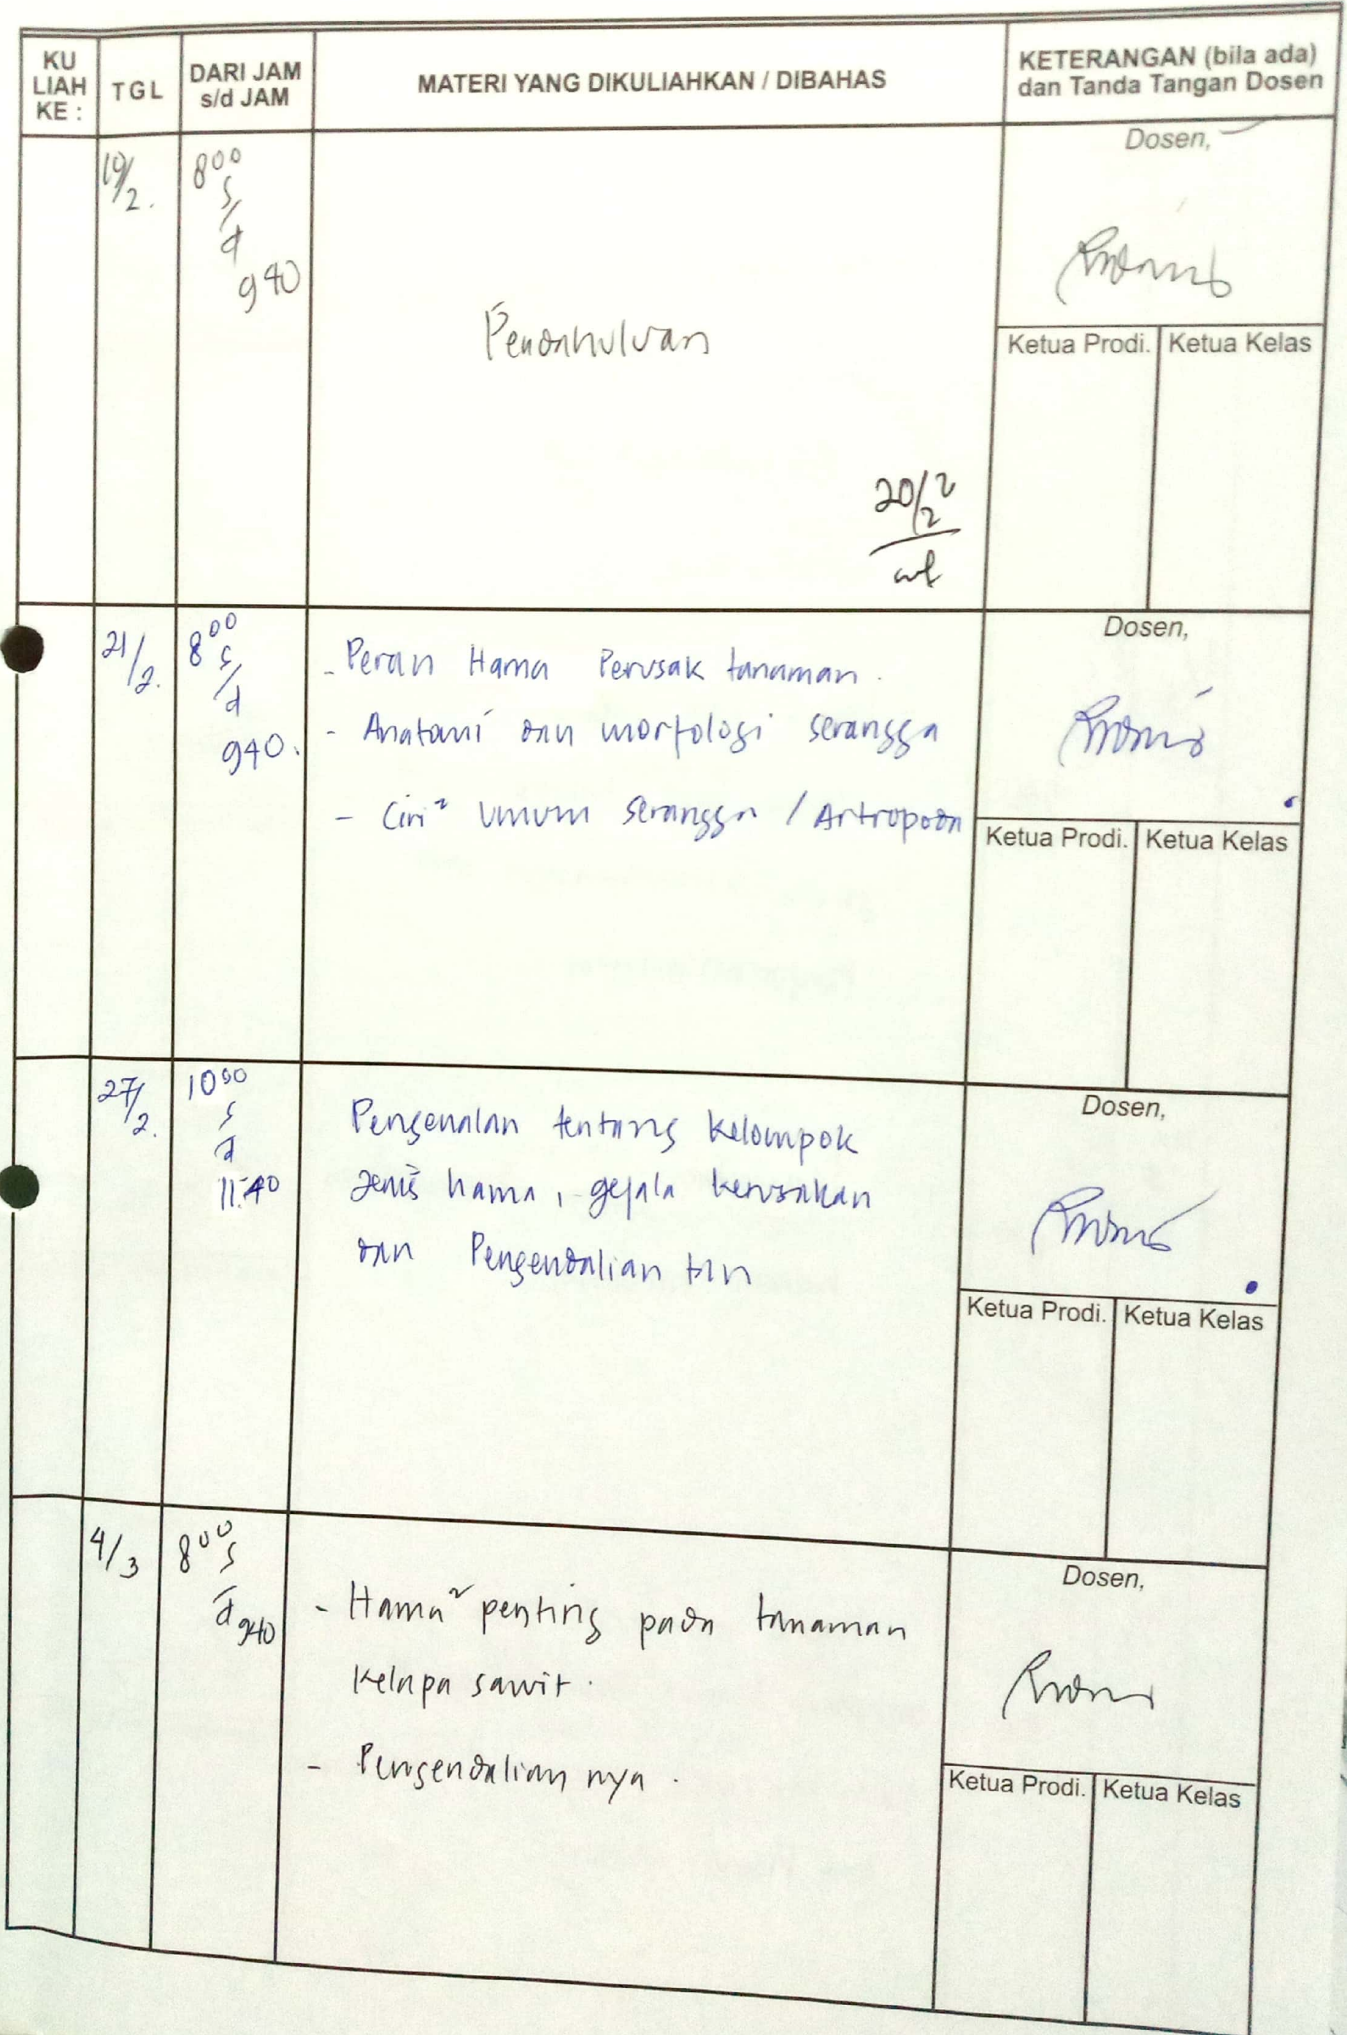 KU
LIAH
KE :
TGL
DARI JAM
s/d JAM
MATERI YANG DIKULIAHKAN / DIBAHAS
KETERANGAN (bila ada)
dan Tanda Tangan Dosen
19/2.
8 00
s/d
9 40
Pendahuluan
20/2
Dosen,
Ketua Prodi.
Ketua Kelas
21/2.
8 00
s/d
9 40.
- Peran Hama Perusak tanaman.
- Anatomi dan morfologi serangga
- Ciri² Umum Serangga / Artropoda
Dosen,
Ketua Prodi.
Ketua Kelas
27/2.
10 00
s/d
11.40
Pengenalan tentang Kelompok
Jenis hama, gejala kerusakan
dan Pengendalian
Dosen,
Ketua Prodi.
Ketua Kelas
4/3
8 00
s/d
9 40
- Hama² penting pada tanaman
Kelapa sawit.
- Pengendalian nya.
Dosen,
Ketua Prodi.
Ketua Kelas